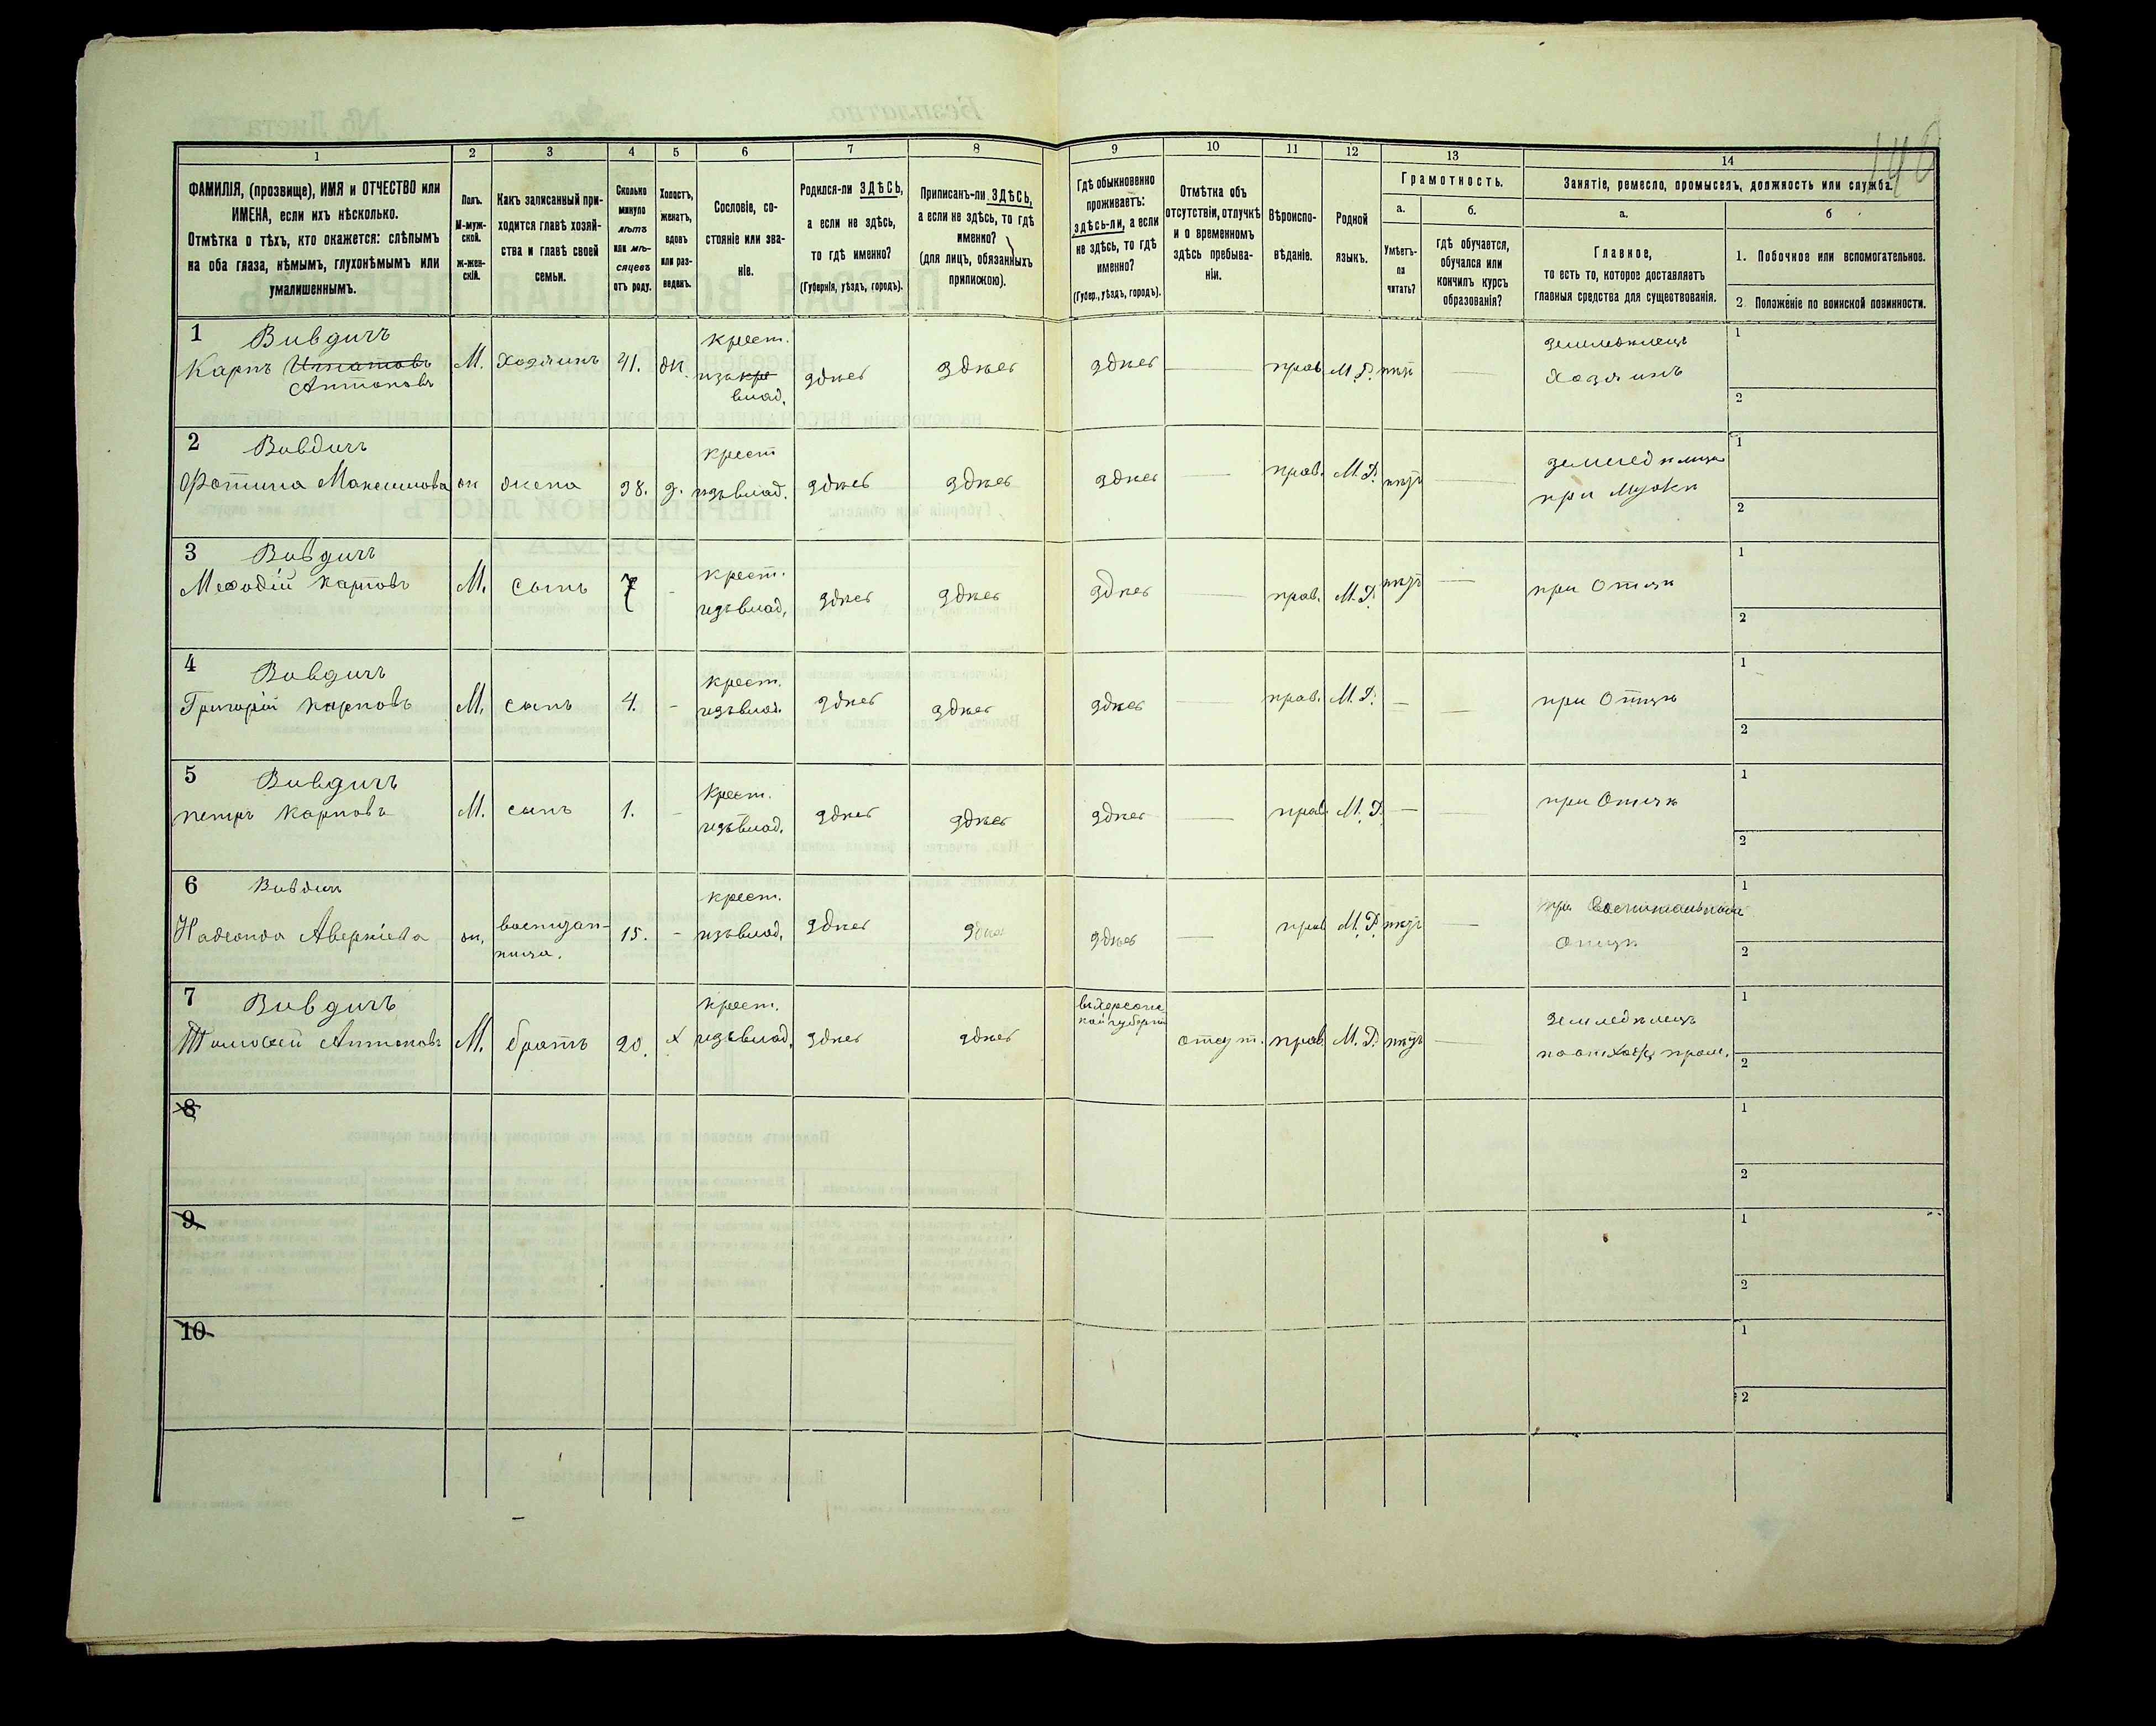 148
1 2 3 4 5 6 7 8 9 10 11 12 13 14
ФАМИЛІЯ, (прозвище), ИМЯ и ОТЧЕСТВО или
ИМЕНА, если ихъ нѣсколько.
Отмѣтка о тѣхъ, кто окажется: слѣпымъ
на оба глаза, нѣмымъ, глухонѣмымъ или
умалишеннымъ.
Полъ.
М-муж-
ской.
ж-жен-
скій.
Какъ записанный при-
ходится главѣ хозяй-
ства и главѣ своей
семьи.
Сколько
минуло
лѣтъ
или мѣ-
сяцевъ
отъ роду.
Холостъ,
женатъ,
вдовъ
или раз-
веденъ.
Сословіе, со-
стояніе или зва-
ніе.
Родился-ли ЗДѢСЬ,
а если не здѣсь,
то гдѣ именно?
(Губернія, уѣздъ, городъ).
Приписанъ-ли ЗДѢСЬ,
а если не здѣсь, то гдѣ
именно?
(для лицъ, обязанныхъ
припискою).
Гдѣ обыкновенно
проживаетъ:
здѣсь-ли, а если
не здѣсь, то гдѣ
именно?
(Губер., уѣздъ, городъ).
Отмѣтка объ
отсутствіи, отлучкѣ
и о временномъ
здѣсь пребыва-
ніи.
Вѣроиспо-
вѣданіе.
Родной
языкъ.
Грамотность.
а.
Умѣетъ-
ли
читать?
б.
гдѣ обучается,
обучался или
кончилъ курсъ
образованія?
Занятіе, ремесло, промыселъ, должность или служба.
а.
Главное,
то есть то, которое доставляетъ
главныя средства для существованія.
б
1. Побочное или вспомогательное.
2. Положеніе по воинской повинности.
1 Вивдичъ
Карпъ
Антоновъ
М. Хозяинъ 41. ж.
крест.
изъ
влад.
здѣсь здѣсь здѣсь — прав М.Р. нѣтъ —
земледѣлецъ
Хозяинъ
1
2
2 Вивдичъ
Фотина Максимова ж жена 38. з.
крест
изъ влад.
здѣсь здѣсь здѣсь — прав. М.Р. нѣтъ —
земледѣлица
при Мужѣ
1
2
3 Вивдичъ
Меѳодій Карповъ М. сынъ 7 -
крест.
изъ влад.
здѣсь здѣсь здѣсь — прав. М.Р. нѣтъ —
при Отцѣ
1
2
4 Вивдичъ
Григорій Карповъ М. сынъ 4. -
крест.
изъ влад.
здѣсь здѣсь здѣсь — прав. М.Р. — —
при Отцѣ
1
2
5 Вивдичъ
Петръ Карповъ М. сынъ 1. -
Крест.
изъ влад.
здѣсь здѣсь здѣсь — прав М.Р. — —
при Отцѣ
1
2
6 Вивдичъ
Надежда Аверкіева ж.
воспитан-
ница.
15. -
крест.
изъ влад.
здѣсь здѣсь здѣсь — прав М.Р. нѣтъ
при
Отцѣ
1
2
7 Вивдичъ
Тимоѳей Антоновъ М. братъ 20. х
крест.
изъ влад.
здѣсь здѣсь
въ Херсонс
кой губерніи
отсут. прав М.Р. нѣтъ —
земледѣлецъ
пром.
1
2
8
1
2
9
1
2
10
1
2